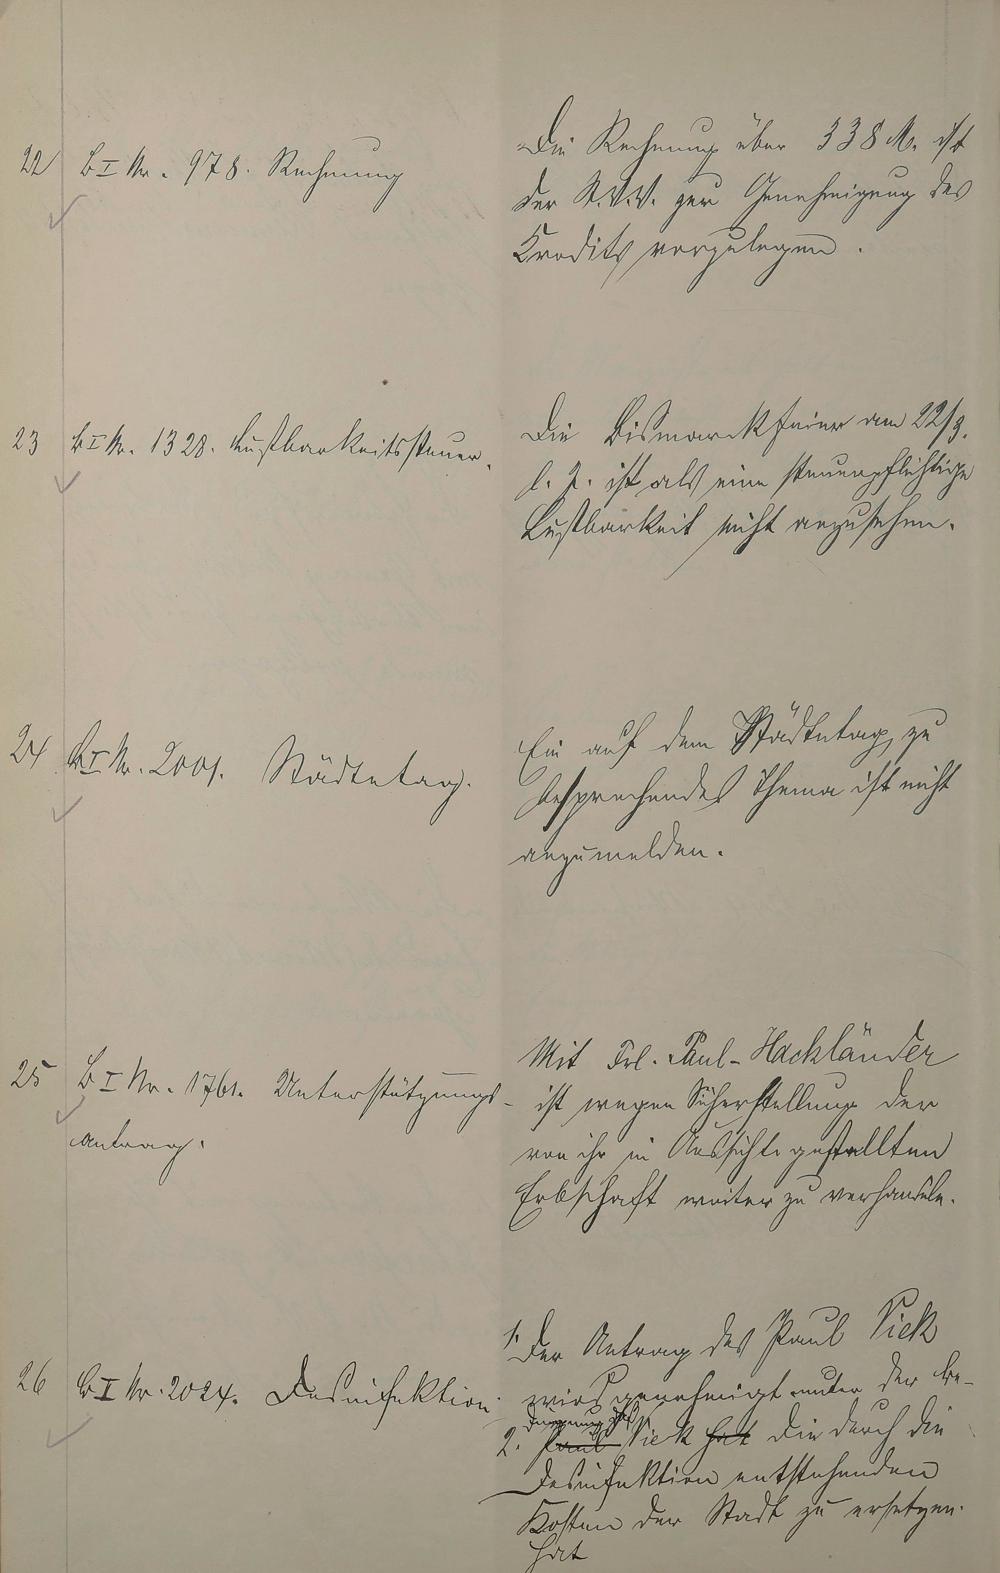 22 B I Nr. 978. Rechnung
Die Rechnung über 338 M. ist
der St.V.V. zur Genehmigung des
Kredits vorzulegen.
23 B I Nr. 1328. Lustbarkeitssteuer.
Die Bismarckfeier am 22/3.
l. J. ist als eine steuerpflichtige
Lustbarkeit nicht anzusehen.
24 B I Nr. 2001. Städtetag.
Ein auf dem Städtetag zu
besprechendes Thema ist nicht
anzumelden.
25 B I Nr. 1761. Unterstützungs-
antrag.
Mit Frl. Paul-Hackländer
ist wegen Sicherstellung der
von ihr in Aussicht gestellten
Erbschaft weiter zu verhandeln.
26 B I Nr. 2024. Desinfektion.
1. Der Antrag des Paul Pick
wird genehmigt unter der Be-
dingung daß
2. Paul Pick hat die durch die
Desinfektion entstehenden
Kosten der Stadt zu ersetzen.
hat